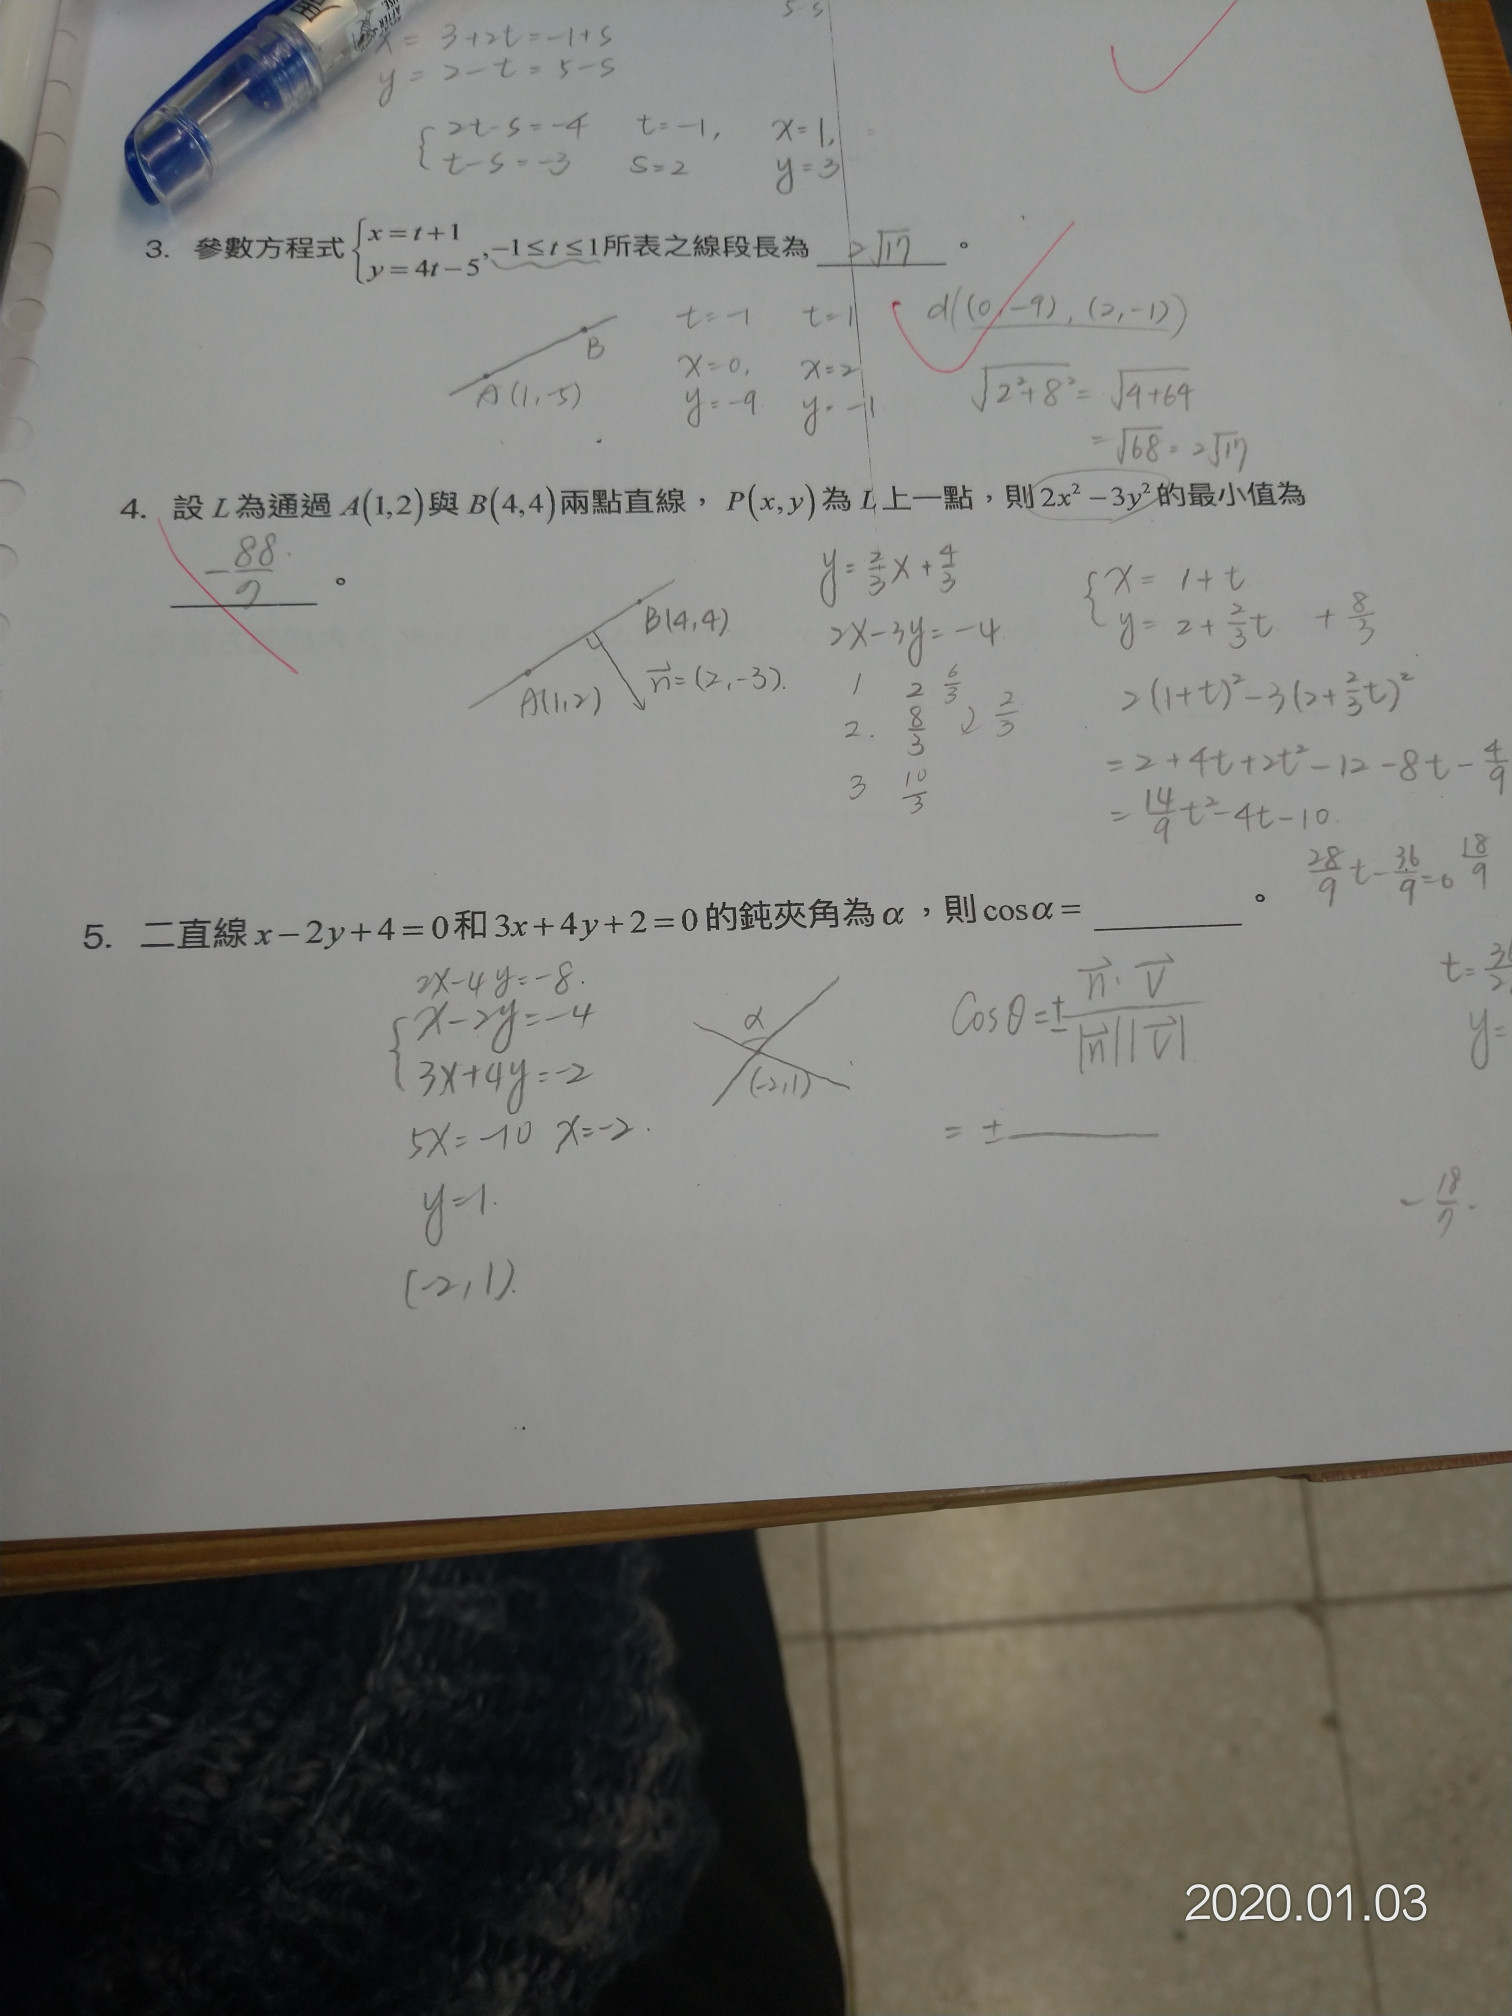 5-5
x = 3+2t = -1+s
y = 2-t = 5-s
{ 2t-s=-4 t=-1, x=1,
t-s=-3 s=2 y=3
3. 參數方程式 { x=t+1
y=4t-5 , -1≤t≤1所表之線段長為 2√17 。
t=-1 t=1 d((0,-9),(2,-1))
B
A(1,-5)
x=0, x=2
y=-9 y=-1
√2²+8² = √4+64
= √68 = 2√17
4. 設 L 為通過 A(1,2)與 B(4,4)兩點直線, P(x,y)為 L 上一點,則 2x²-3y² 的最小值為
-88/7 。
y=2/3x+4/3
2x-3y=-4
B(4,4)
A(1,2) n=(2,-3).
1 2 6/3
2. 8/3 2/3
3 10/3
{ x= 1+t
y= 2+2/3t +8/3
2(1+t)²-3(2+2/3t)²
=2+4t+2t²-12-8t-4/9
=14/9t²-4t-10.
28/9t-36/9=0 18/9
5. 二直線 x-2y+4=0和 3x+4y+2=0 的鈍夾角為α,則cosα= 。
2x-4y=-8.
{ x-2y=-4
3x+4y=-2
5x=-10 x=-2.
y=1.
(-2,1).
α
(-2,1)
Cosθ=± n·v/|n||v|
= ±
t=
y=
-18/7.
2020.01.03